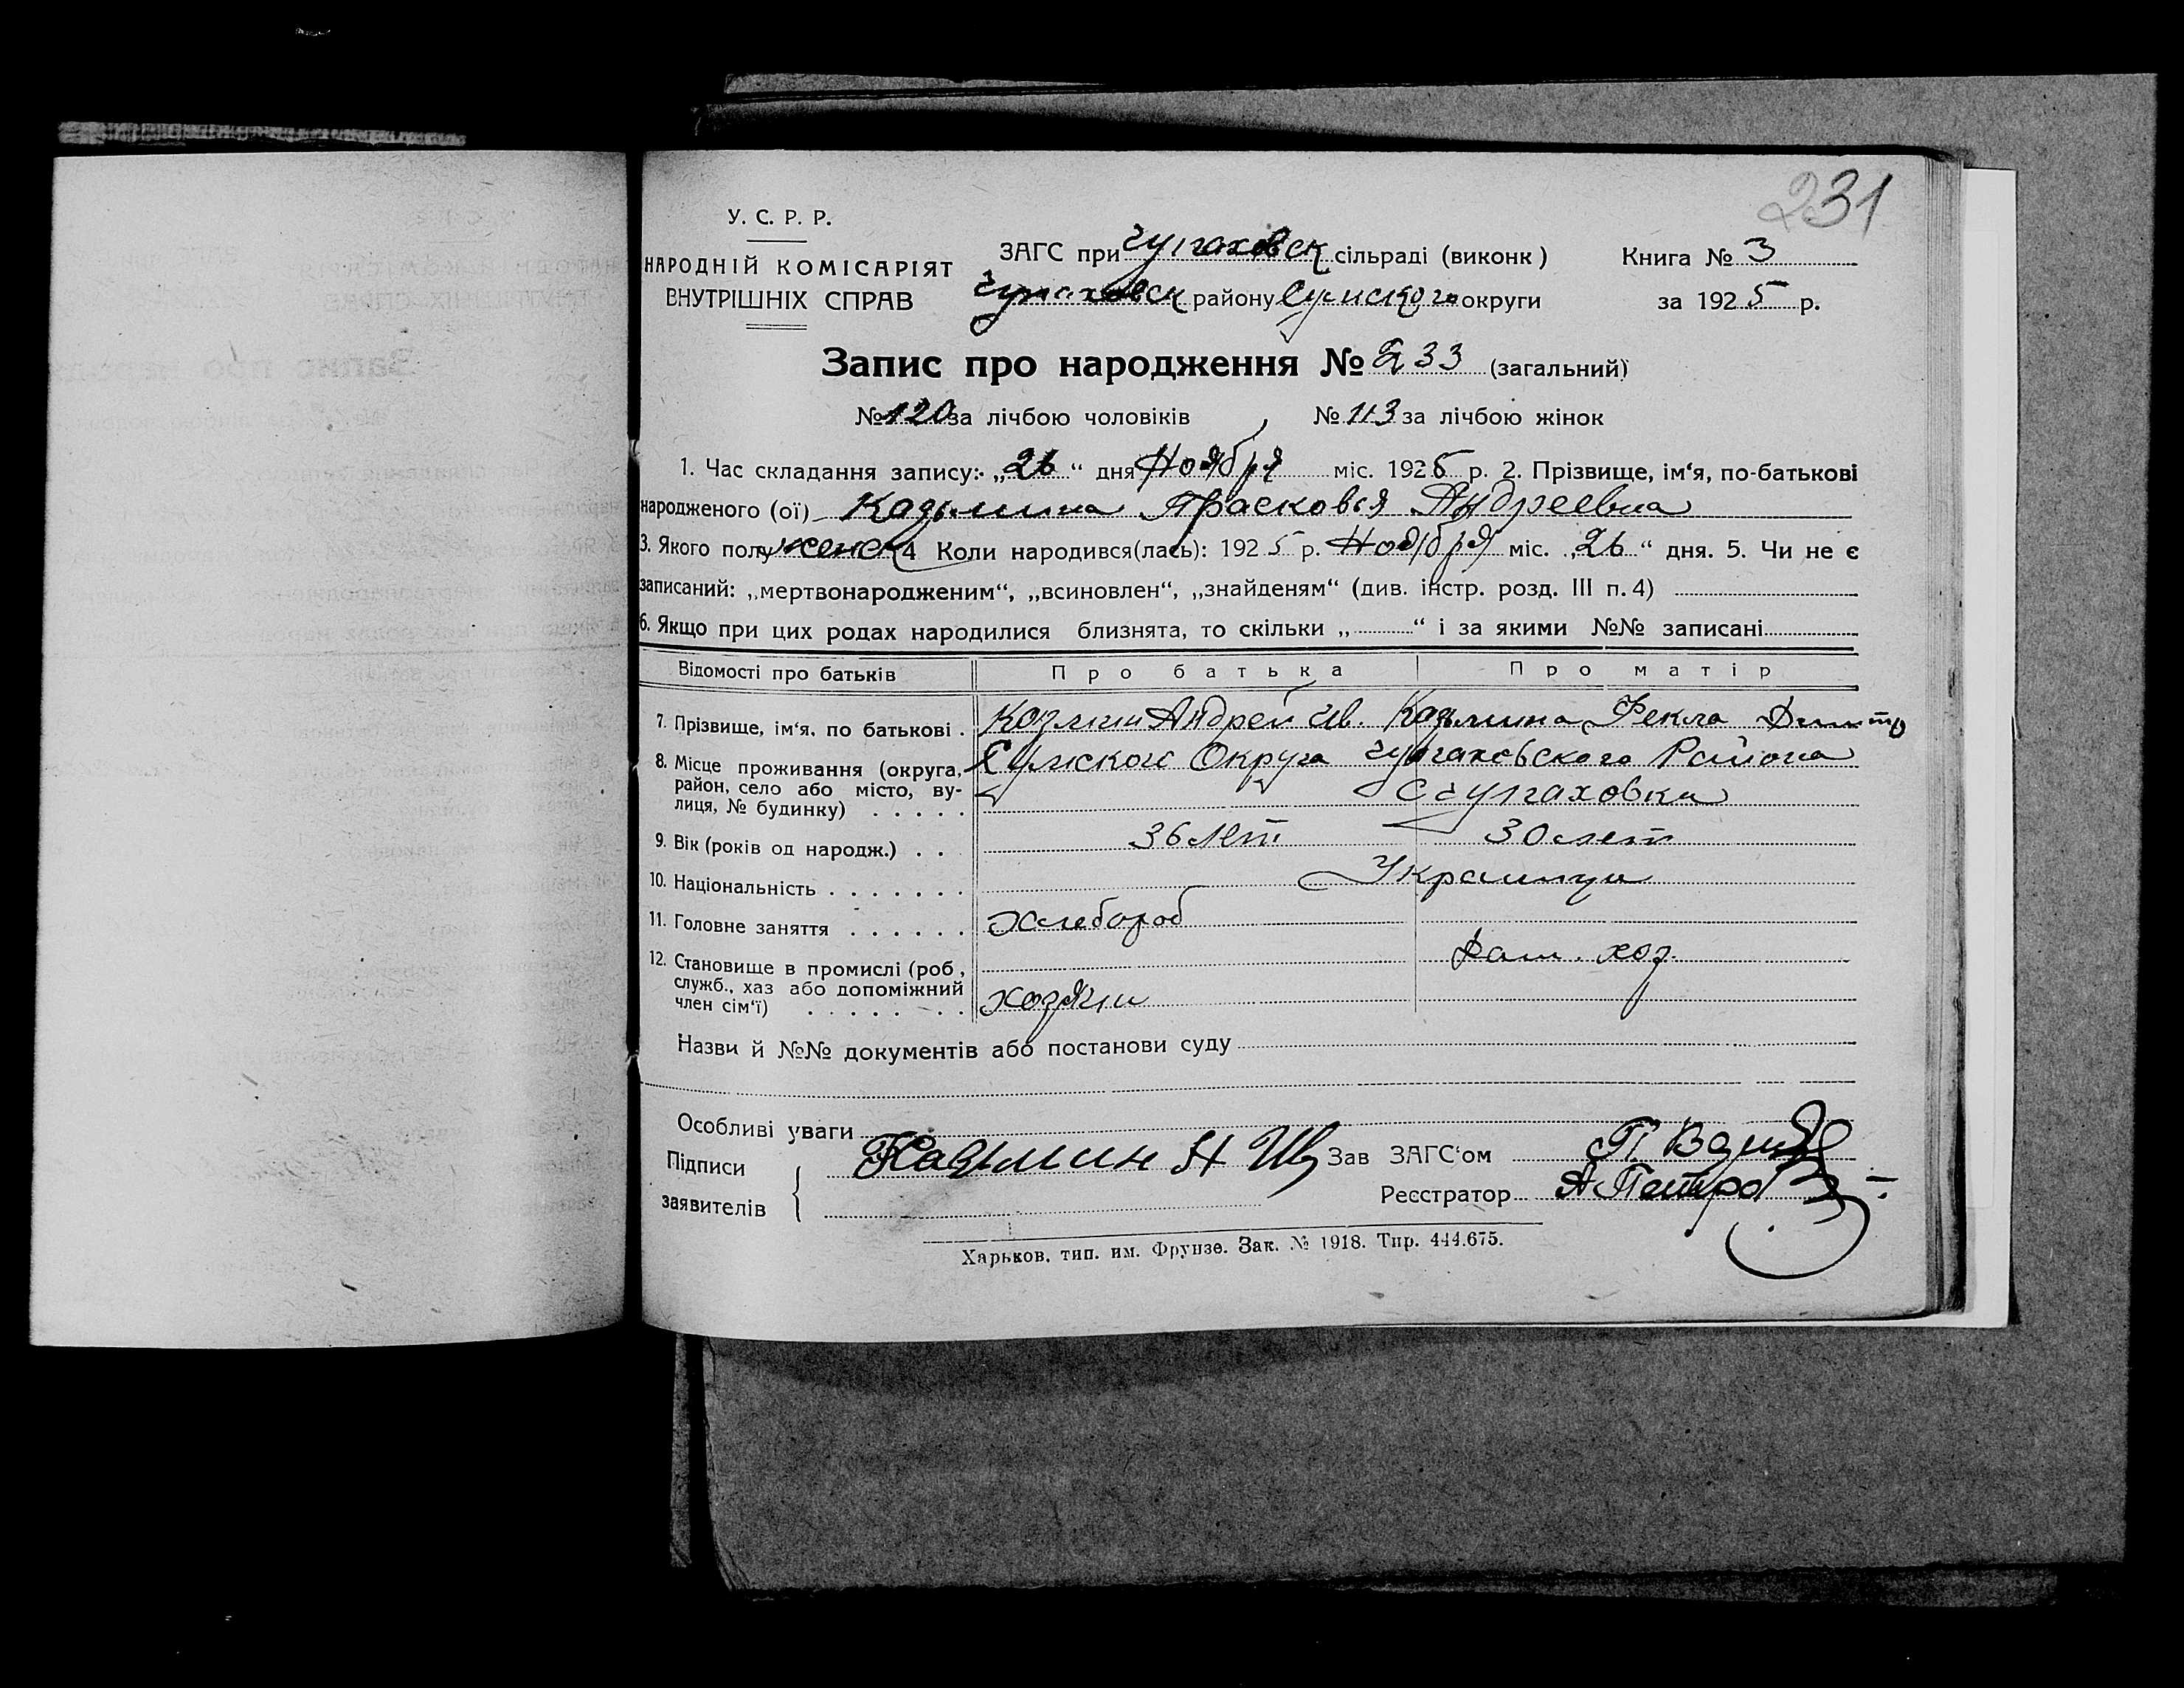 231
У. С. Р. Р.
НАРОДНІЙ КОМІСАРІЯТ
ВНУТРІШНІХ СПРАВ
ЗАГС при сільраді (виконк)
району Сумского округи
Книга № 3
за 1925 р.
Запис про народження № 233 (загальний)
№ 120 за лічбою чоловіків № 113 за лічбою жінок
1. Час складання запису: „26“ дня Ноября міс. 1925 р. 2. Прізвище, ім‘я, по-батькові
народженого (ої) Казьмина Прасковья Андреевна
3. Якого полу женс 4 Коли народився(лась): 1925 р. Ноября міс. „26“ дня. 5. Чи не є
записаний: „мертвонародженим“, „всиновлен“, „знайденям“ (див. інстр. розд. III п. 4)
6. Якщо при цих родах народилися близнята, то скільки „ “ і за якими №№ записані
Відомості про батьків Про батька Про матір
7. Прізвище, ім‘я, по батькові . Козмин Андрей Ив. Казьмина Фекла Дмит
8. Місце проживання (округа, Сумского Округа Района
район, село або місто, ву-
лиця, № будинку) . . . . .
9. Вік (років од народж.) . . 36 лет 30 лет
10. Національність . . . . . . . Украинцы
11. Головне заняття . . . . . . хлебороб
12. Становище в промислі (роб, Дом. хоз.
служб., хаз або допоміжний
член сім‘ї) . . . . . . . хозяин
Назви й №№ документів або постанови суду
Особливі уваги
Підписи
заявителів
Казьмин А
Зав ЗАГС‘ом
Реєстратор
Харьков, тип. им. Фрунзе. Зак. № 1918. Тир. 444.675.